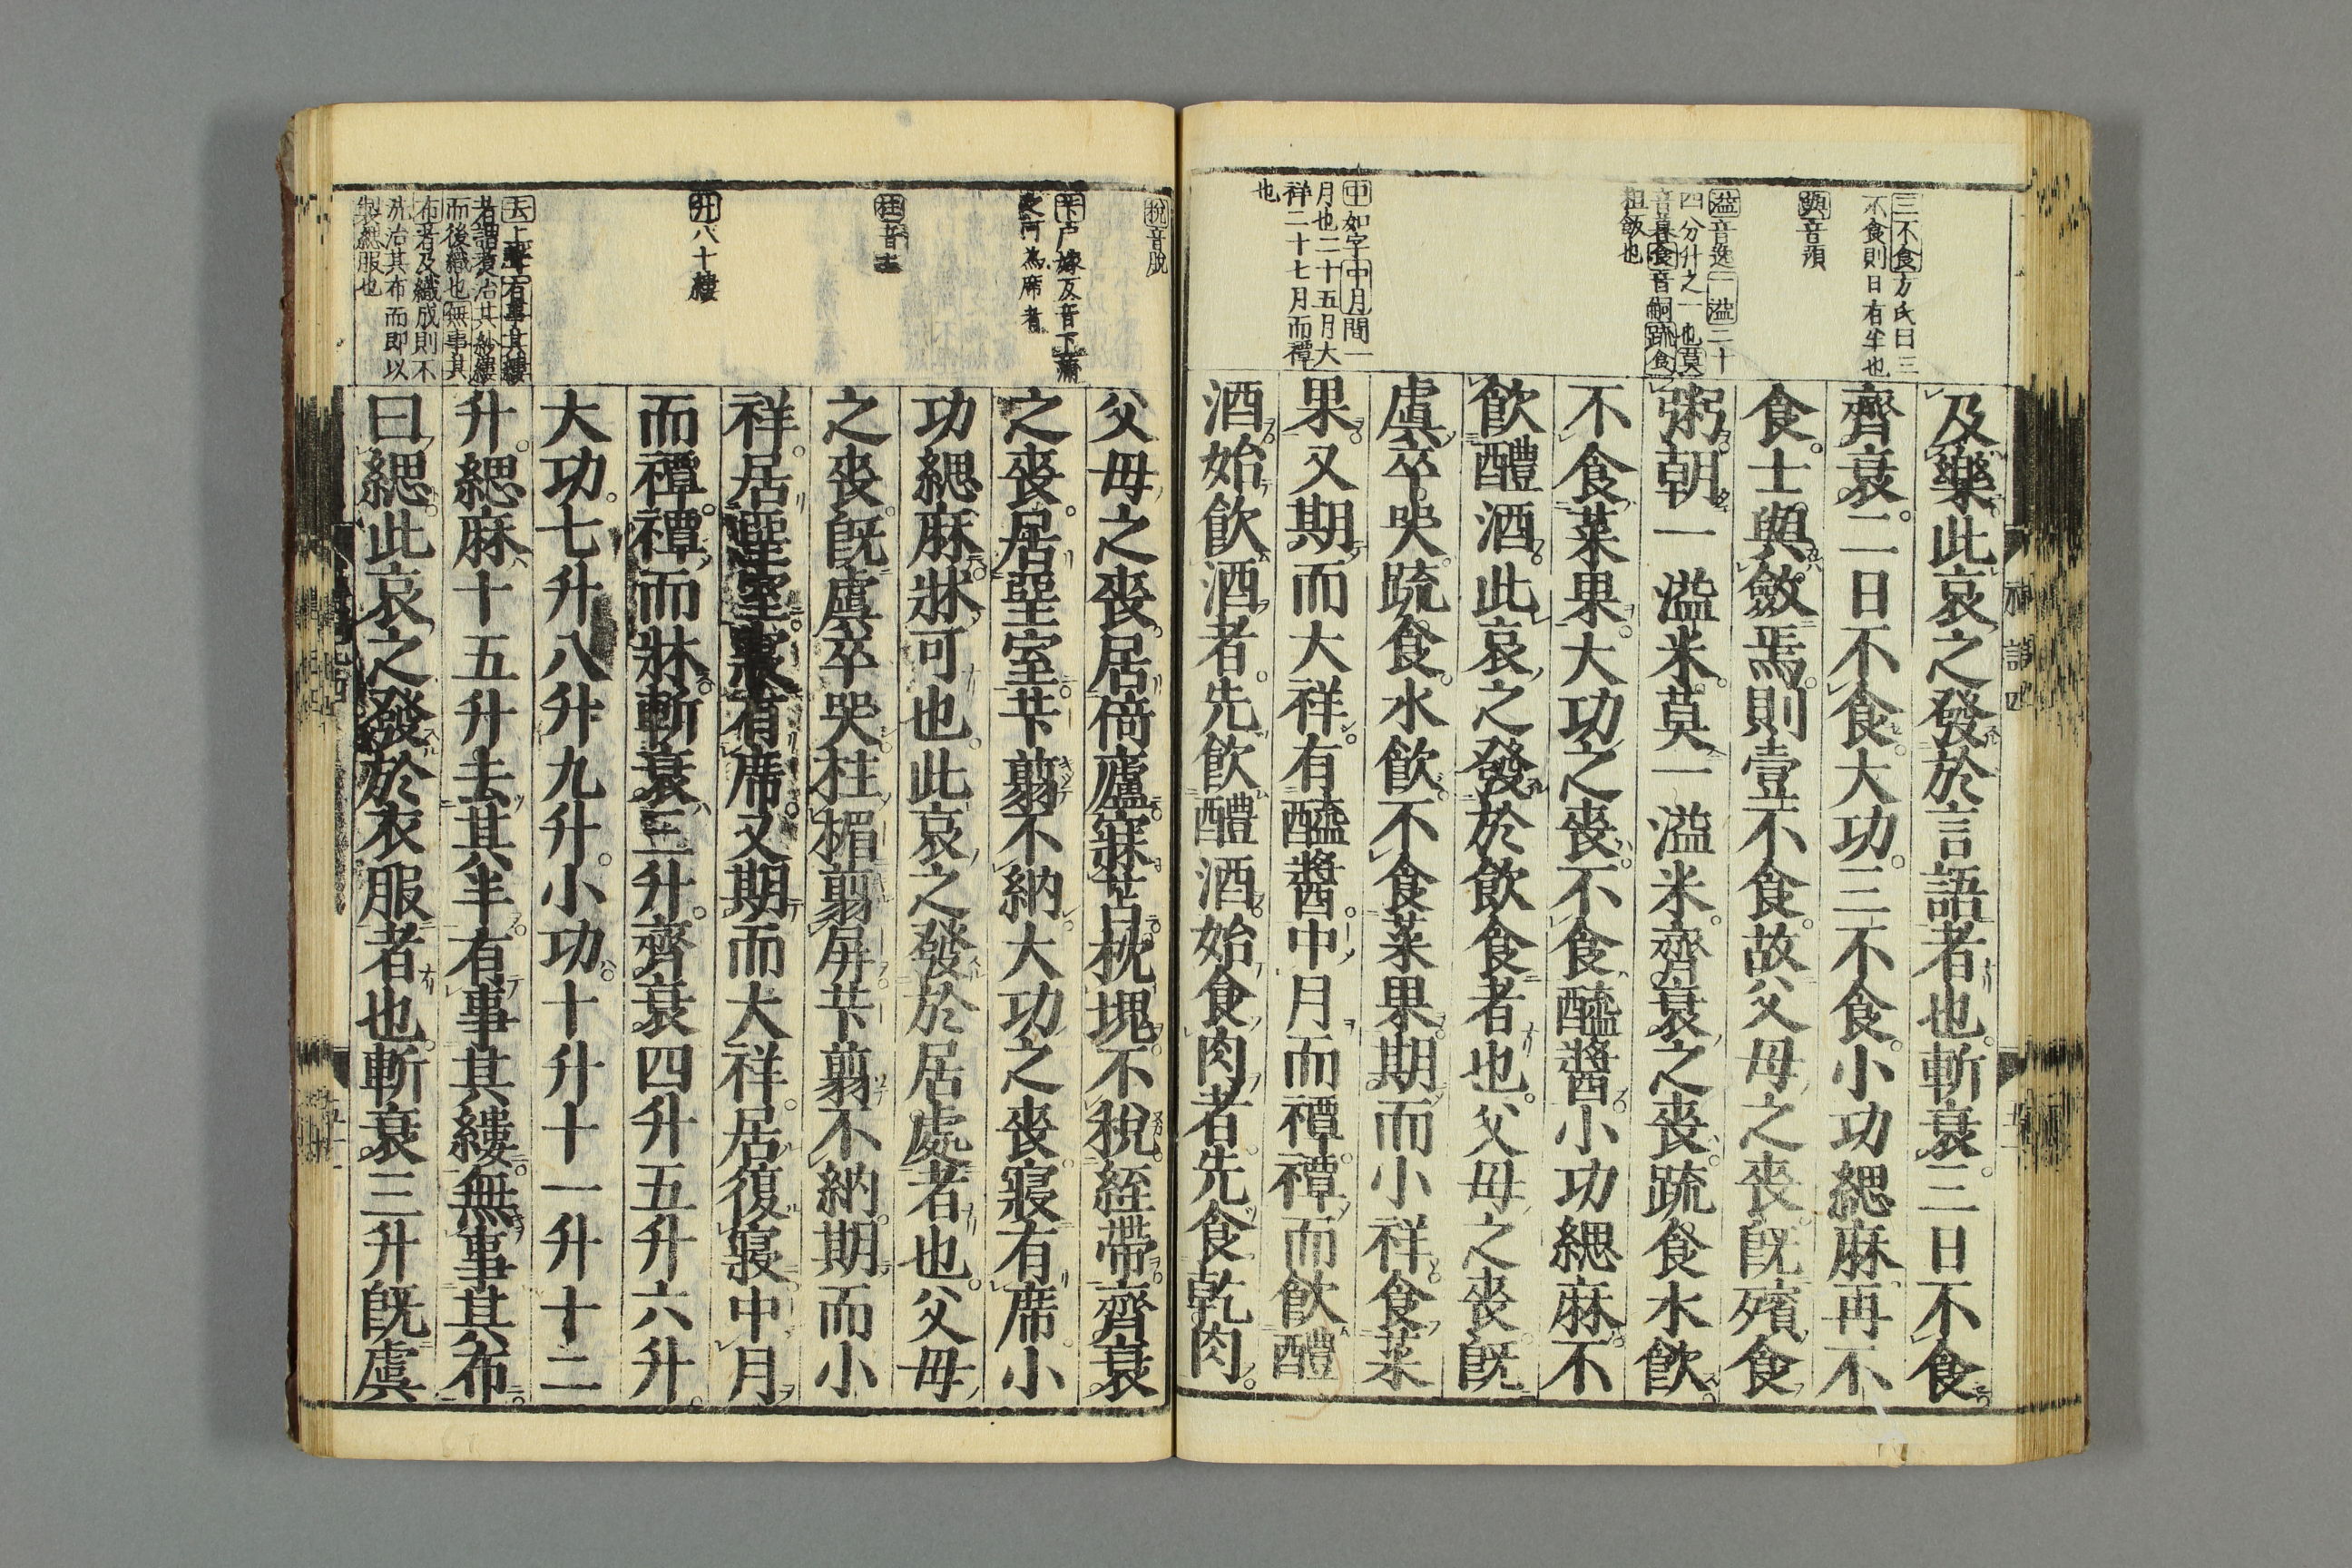 三不食方氏曰三
不食則日有半也
與音預
溢音逸一溢二十
四分升之一也莫
音暮食音嗣疏食
粗飯也
中如字中月間一
月也二十五月大
祥二十七月而禫
也
及樂此哀之發於言語者也斬衰三日不食
齊衰二日不食大功三不食小功緦麻再不
食士與斂焉則壹不食故父母之喪旣殯食
粥朝一溢米莫一溢米齊衰之喪疏食水飮
不食菜果大功之喪不食醯醬小功緦麻不
飮醴酒此哀之發於飮食者也父母之喪旣
虞卒哭疏食水飮不食菜果期而小祥食菜
果又期而大祥有醯醬中月而禫禫而飮醴
酒始飮酒者先飮醴酒始食肉者先食乾肉
稅音脫
芐戸嫁反音下蒲
之可為席者
柱音主
升八十縷
去上聲有事其縷
者謂煑治其紗縷
而後織也無事其
布者及織成則不
洗治其布而即以
製緦服也
父母之喪居倚廬寢苫枕塊不稅絰帶齊衰
之喪居堊室芐翦不納大功之喪寢有席小
功緦麻牀可也此哀之發於居處者也父母
之喪旣虞卒哭柱楣翦屏芐翦不納期而小
祥居堊室寢有席又期而大祥居復寢中月
而禫禫而牀斬衰三升齊衰四升五升六升
大功七升八升九升小功十升十一升十二
升緦麻十五升去其半有事其縷無事其布
曰緦此哀之發於衣服者也斬衰三升旣虞